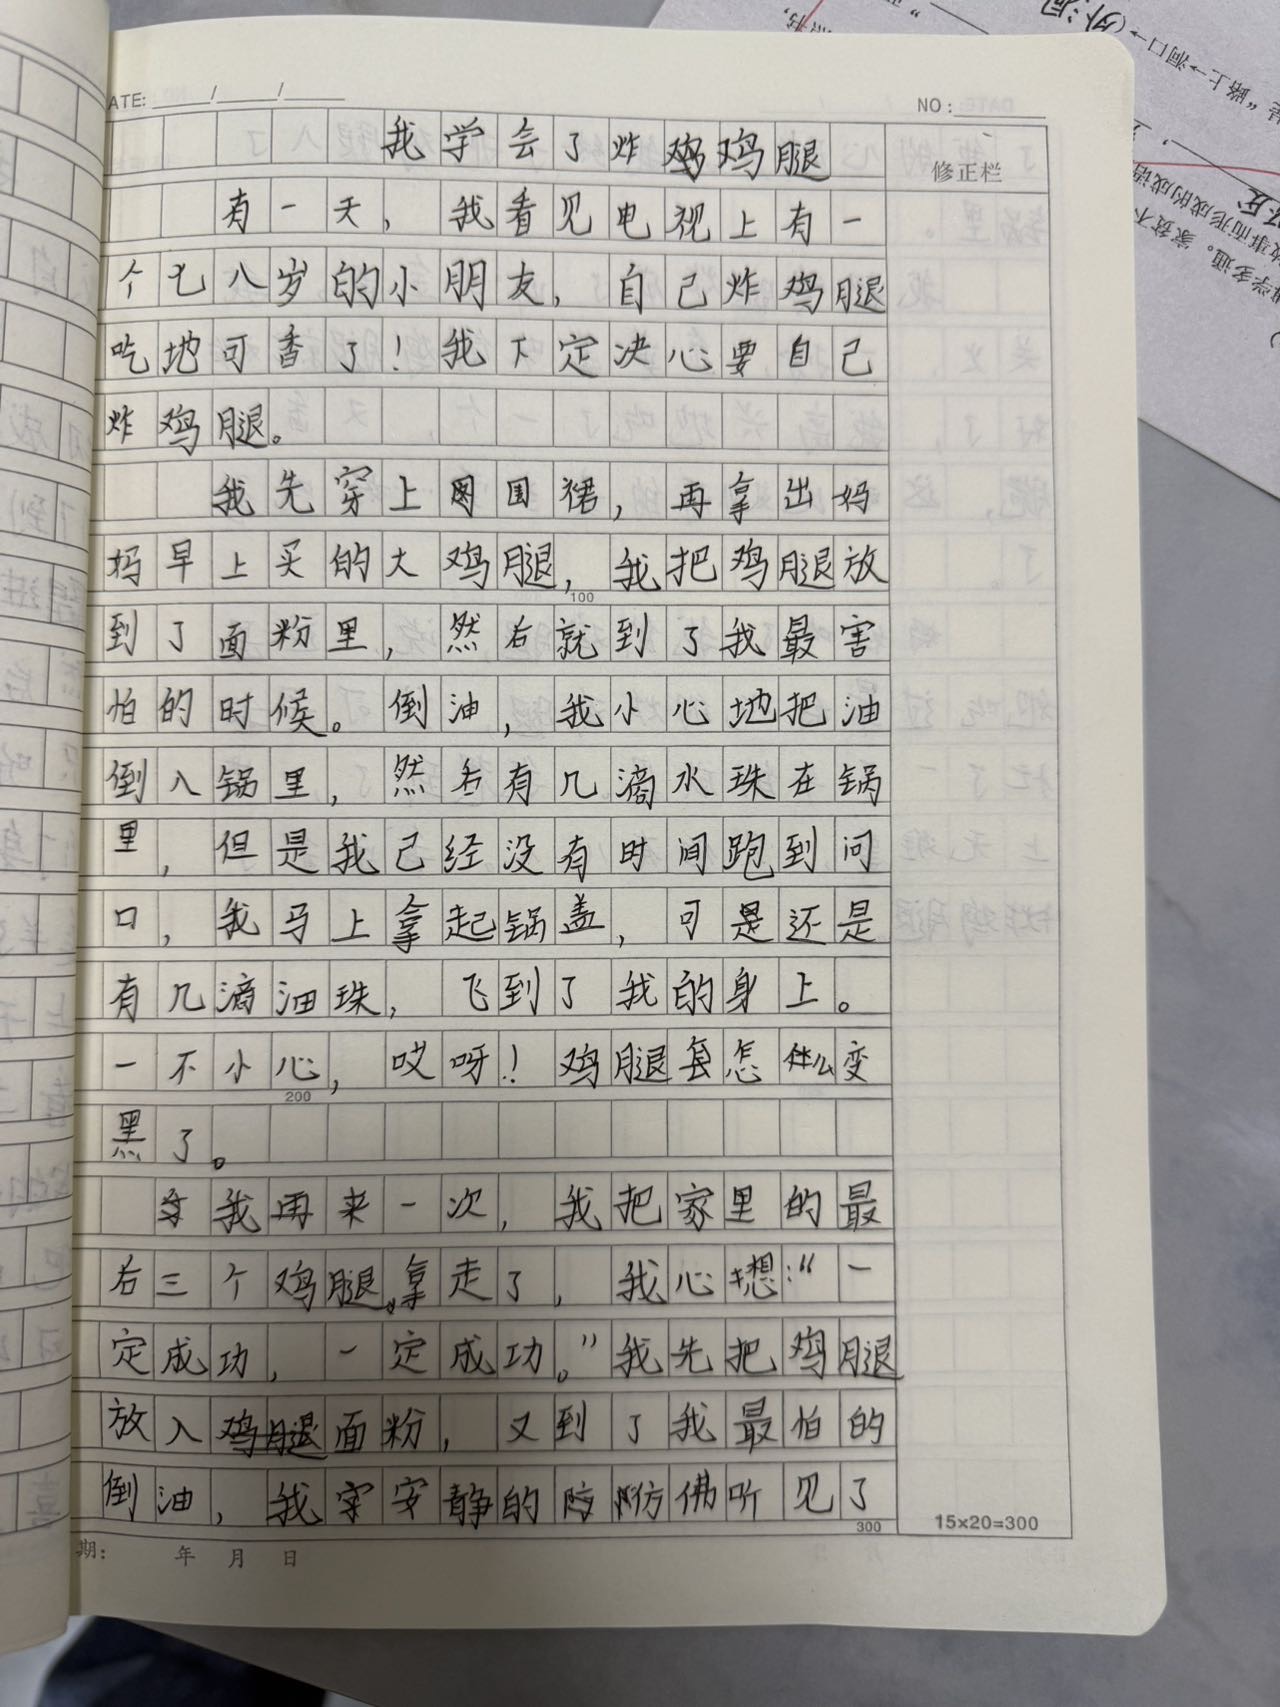 ATE: ___/___/___ NO:
我学会了炸鸡鸡腿
修正栏
有一天，我看见电视上有一
个七八岁的小朋友，自己炸鸡腿
吃地可香了！我下定决心要自己
炸鸡腿。
我先穿上围国裙，再拿出妈
妈早上买的大鸡腿，我把鸡腿放
100
到了面粉里，然右就到了我最害
怕的时候。倒油，我小心地把油
倒入锅里，然右有几滴水珠在锅
里，但是我己经没有时间跑到问
口，我马上拿起锅盖，可是还是
有几滴油珠，飞到了我的身上。
一不小心，哎呀！鸡腿怎么变
200
黑了。
我再来一次，我把家里的最
右三个鸡腿拿走了，我心想："一
定成功，一定成功。"我先把鸡腿
放入鸡腿面粉，又到了我最怕的
倒油，我安静的仿佛听见了
300
15×20=300
期： 年 月 日